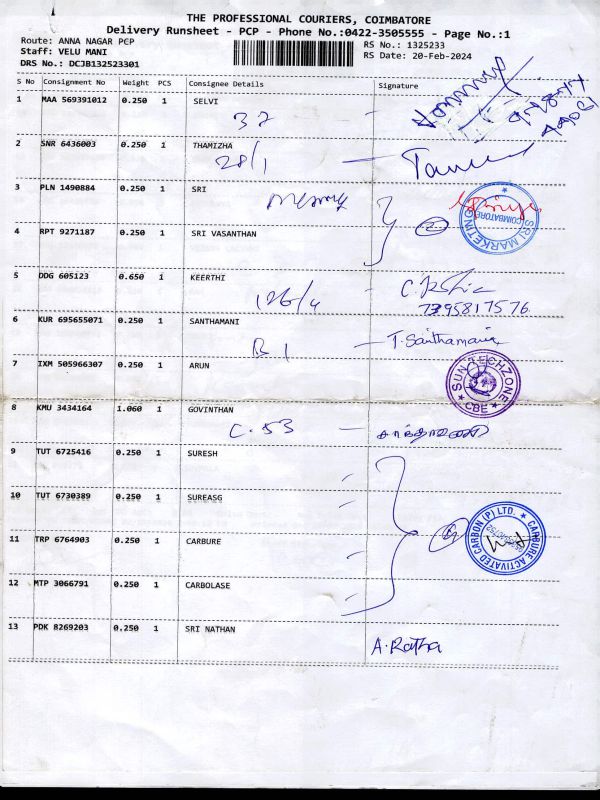 THE PROFESSIONAL COURIERS, COIMBATORE
Delivery Runsheet - PCP - Phone No.:0422-3505555 - Page No.:1
Route: ANNA NAGAR PCP
RS No.: 1325233
Staff: VELU MANI
RS Date: 20-Feb-2024
DRS No.: DCJB132523301
S No Consignment No Weight PCS Consignee Details Signature
1 MAA 569391012 0.250 1 SELVI
37
2 SNR 6436003 0.250 1 THAMIZHA
28/1
3 PLN 1490884 0.250 1 SRI
SRI MARKETING
COIMBATORE
4 RPT 9271187 0.250 1 SRI VASANTHAN
2
5 DDG 605123 0.650 1 KEERTHI
126/4
7395817576
6 KUR 695655071 0.250 1 SANTHAMANI
B 1 T. Santhamani
7 IXM 505966307 0.250 1 ARUN
SUN TECHZONE
CBE
8 KMU 3434164 1.060 1 GOVINTHAN
C. 53
9 TUT 6725416 0.250 1 SURESH
10 TUT 6730389 0.250 1 SUREASG
11 TRP 6764903 0.250 1 CARBURE
CARBURE ACTIVATED CARBON (P) LTD.
12 MTP 3066791 0.250 1 CARBOLASE
13 PDK 8269203 0.250 1 SRI NATHAN
A. Ratha